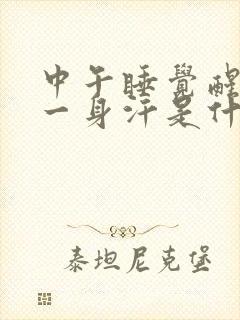 中午睡覺醒
一身汗是什
泰坦尼克堡